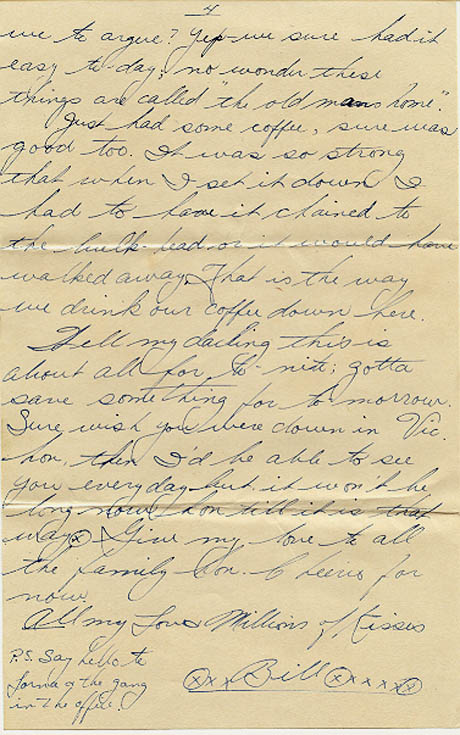 4
we to argue? Yep-we sure had it
easy to-day; no wonder these
things are called "the old mans home".
Just had some coffee, sure was
good too. It was so strong
that when I set it down I
had to have it chained to
the bulk-head or it would have
walked away. That is the way
we drink our coffee down here.
Well my darling this is
about all for to-nite; gotta
save something for to morrow.
Sure wish you were down in Vic.
hon, then I'd be able to see
you everyday but it won't be
long now hon till it is that
way. x Give my love to all
the family hon. Cheerio for
now.
All my Love & Millions of Kisses
xxx Bill xxxxxx
P.S. Say hello to
Lorna & the gang
in the office.